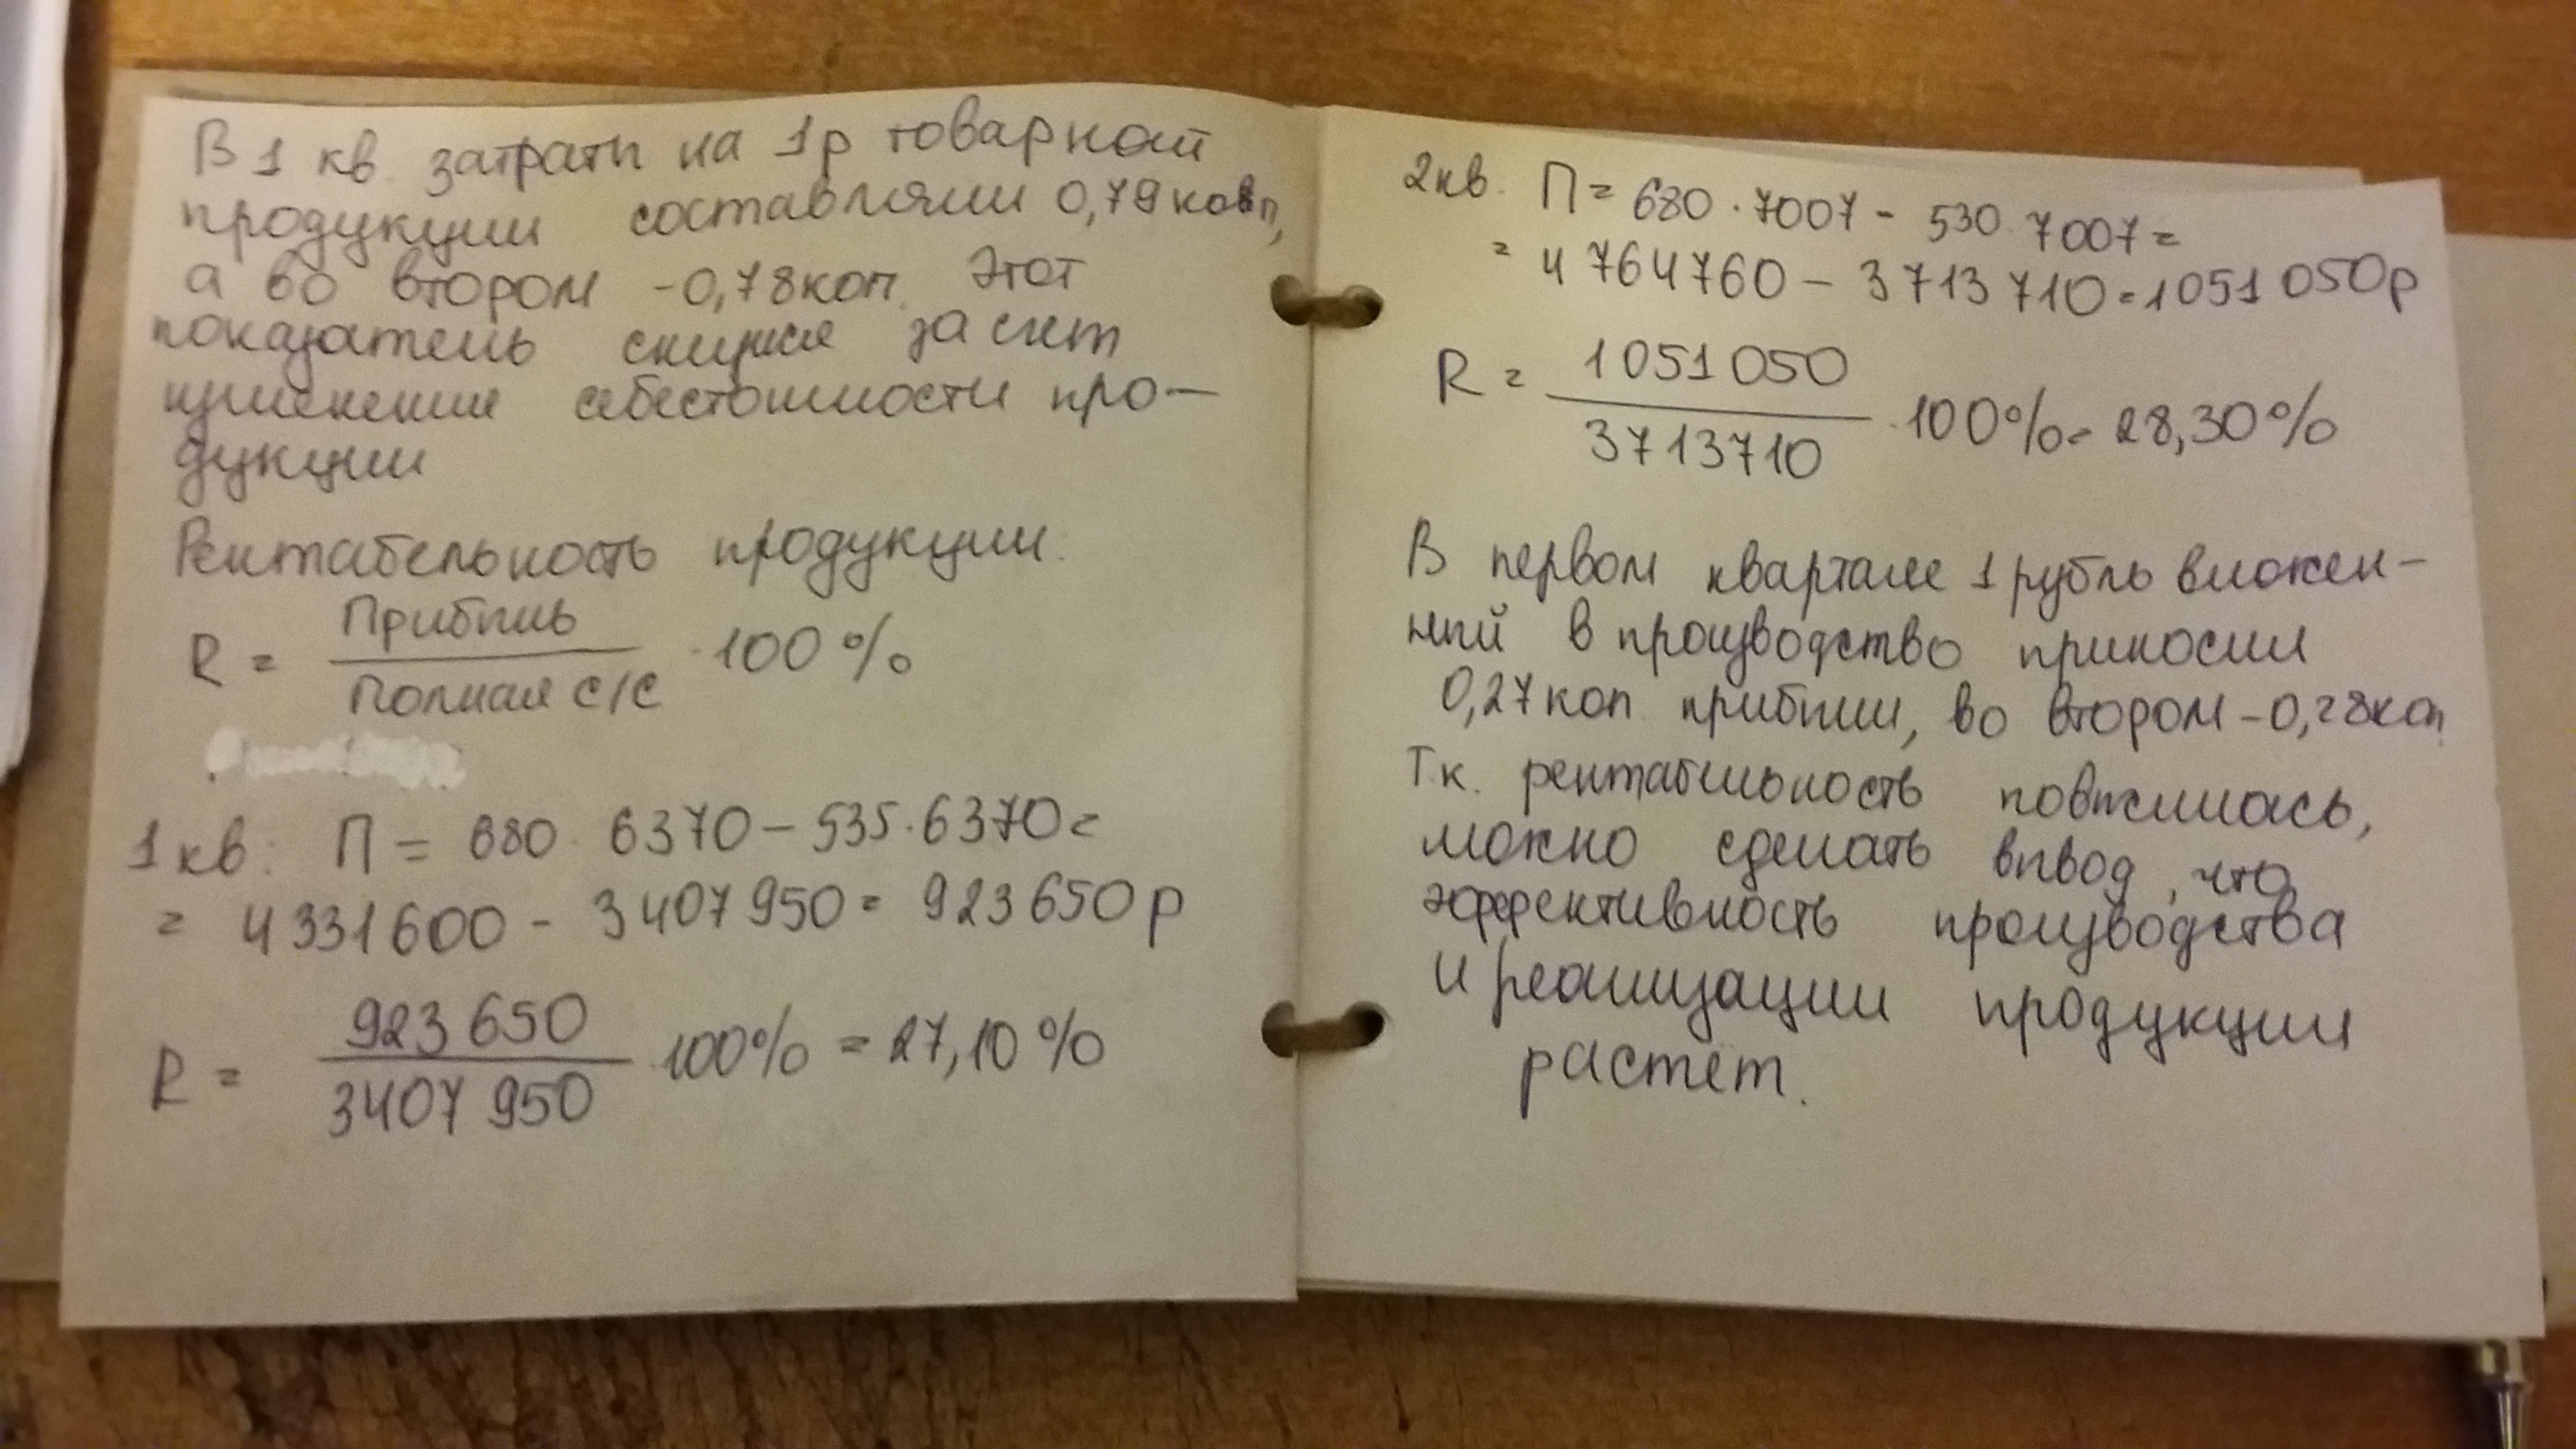 В 1 кв. затраты на 1р товарной
продукции составляли 0,79 коп,
а во втором -0,78коп. Этот
показатель снизился за счет
изменения себестоимости про-
дукции
Рентабельность продукции:
R = Прибыль / Полная с/с · 100 %
1 кв: П = 680 · 6370 - 535 · 6370 =
= 4331600 - 3407950 = 923650 р
R = 923 650 / 3407 950 · 100% = 27,10 %
2кв. П = 680 · 7007 - 530 · 7007 =
= 4764760 - 3713710 = 1051 050р
R = 1051 050 / 3713710 · 100% = 28,30%
В первом квартале 1 рубль вложен-
ный в производство приносил
0,27 коп прибыли, во втором - 0,28коп
Т.к. рентабельность повысилась,
можно сделать вывод, что
эффективность производства
и реализации продукции
растет.